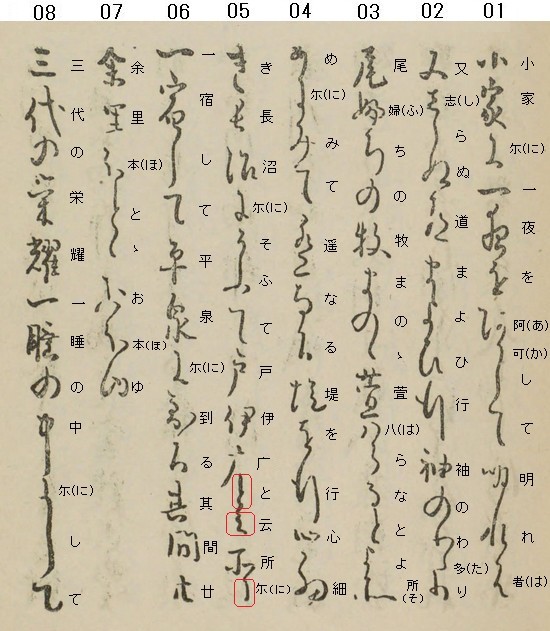 08 07 06 05 04 03 02 01
小家尓(に)一夜を阿(あ)可(か)して明れ者(は)
又志(し)らぬ道まよひ行袖のわ多(た)り
尾婦(ふ)ちの牧まのゝ萱八(は)らなとよ所(そ)
め尓(に)みて遥なる堤を行心細
き長沼尓(に)そふて戸伊广と云所尓(に)
一宿して平泉尓(に)到る其間廿
余里本(ほ)とゝお本(ほ)ゆ
三代の栄耀一睡の中尓(に)して